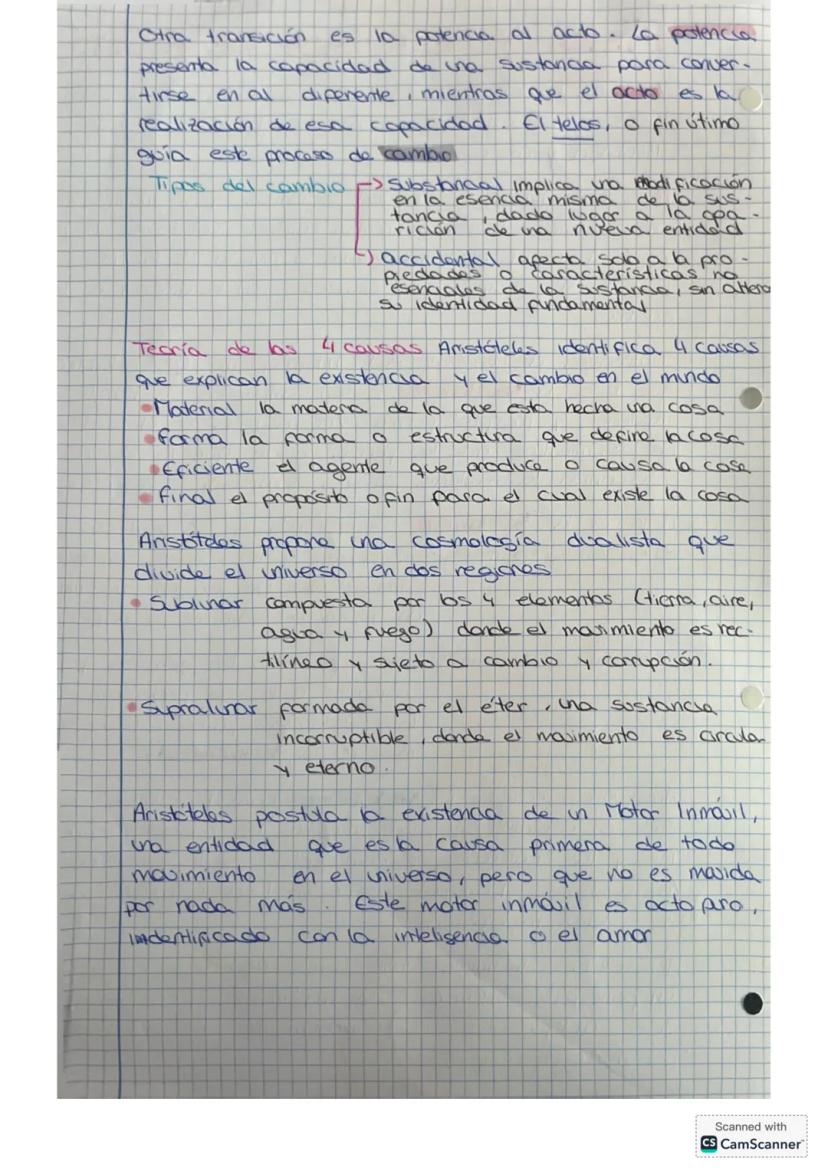 Otra transición es la potencia al acto. La potencia
presenta la capacidad de una sustancia para conver-
tirse en al diferente, mientras que el acto es la
realización de esa capacidad. El telos, o fin útimo
guía este proceso de cambio
Tipos del cambio → Substancal implica una modificación
en la esencia misma de la sus-
tancia, dado lugar a la apa-
rición de una nueva entidad
→ accidental afecta solo a la pro-
piedades o características no
esenciales de la sustancia, sin altera
su identidad fundamental
Teoría de las 4 causas Aristóteles identifica 4 causas
que explican la existencia y el cambio en el mundo
• Material la materia de la que esta hecha una cosa
• forma la forma o estructura que define la cosa
• Eficiente el agente que produce o causa la cosa
• final el propósito o fin para el cual existe la cosa
Aristóteles propone una cosmología dualista que
divide el universo en dos regiones
• Sublunar compuesta por los 4 elementos (tierra, aire,
agua y fuego) donde el movimiento es rec-
tilíneo y sujeto a cambio y corrupción.
• Supralunar formada por el éter, una sustancia
incorruptible, donde el movimiento es circular
y eterno.
Aristóteles postula la existencia de un Motor Inmóvil,
una entidad que es la causa primera de todo
movimiento en el universo, pero que no es movida
por nada más. Este motor inmóvil es acto puro,
indentificado con la inteligencia o el amor
Scanned with
CS CamScanner